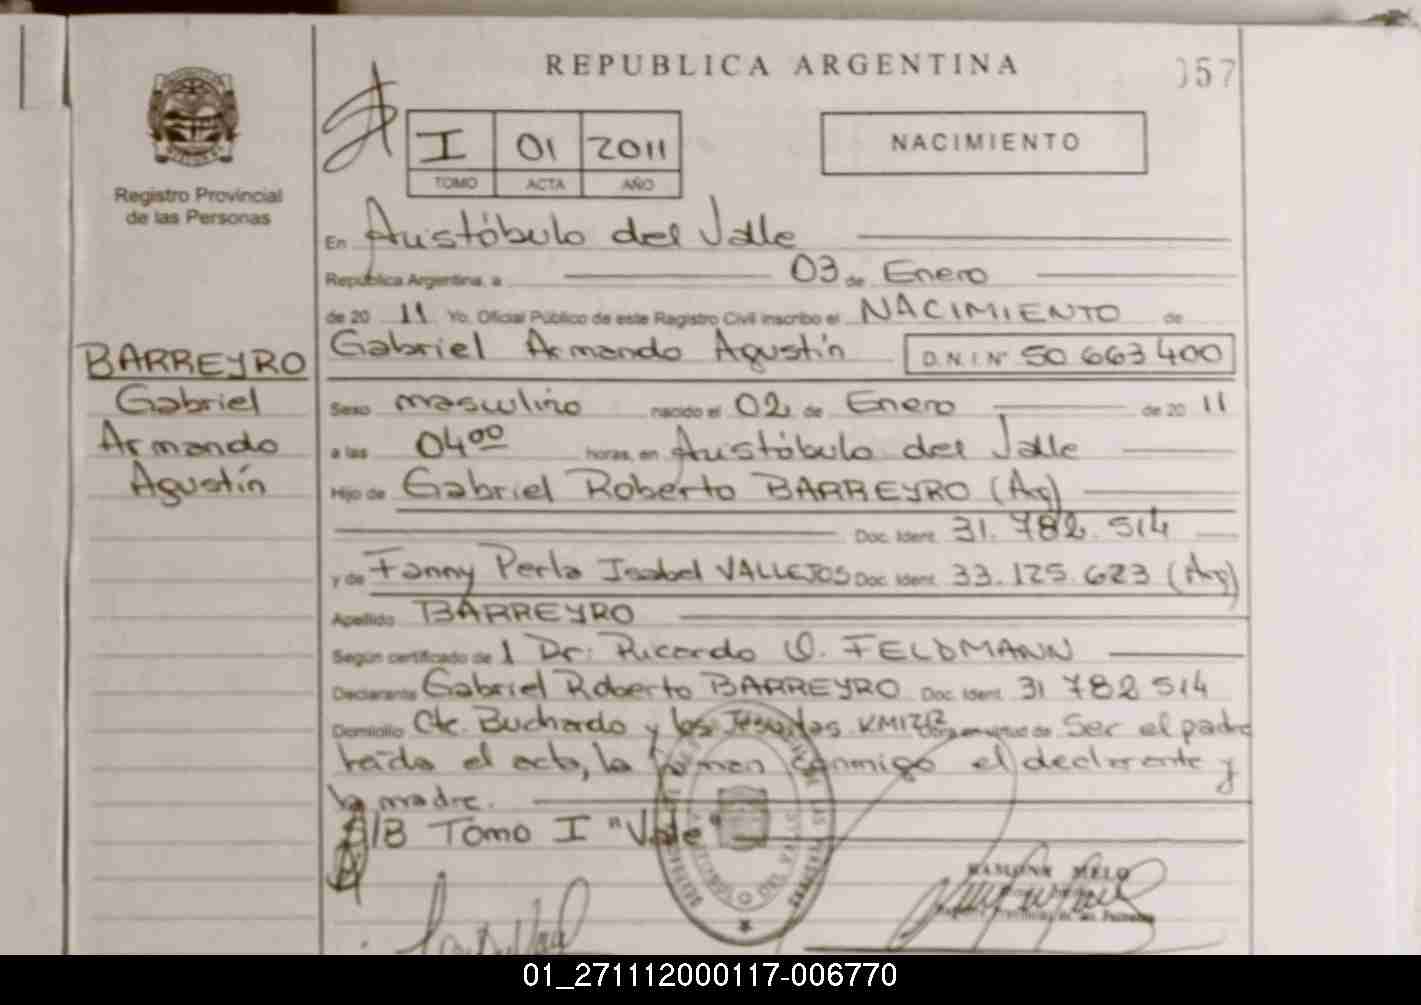 REPUBLICA ARGENTINA
057
Registro Provincial
de las Personas
I 01 2011
TOMO ACTA AÑO
NACIMIENTO
En Aristóbulo del Valle
República Argentina, a 03 de Enero
de 20 11 Yo, Oficial Público de este Registro Civil inscribo el NACIMIENTO de
Gabriel Armando Agustín D.N.I. Nº 50 663 400
BARREYRO
Gabriel
Armando
Agustín
Sexo masculino nacido el 02 de Enero de 20 11
a las 04 00 horas, en Aristóbulo del Valle
Hijo de Gabriel Roberto BARREYRO (Arg)
Doc. Ident. 31.782.514
y de Fanny Perla Isabel VALLEJOS Doc. Ident. 33.125.623 (Arg)
Apellido BARREYRO
Según certificado de 1 Dr: Ricardo O. FELDMANN
Declarante Gabriel Roberto BARREYRO Doc. Ident. 31 782 514
Domicilio Cte. Buchardo y los Jesuitas Obra en virtud de Ser el padre
leída el acta, la firman conmigo el declarante y
la madre.
Tomo I "Valle"
RAMONA MELO
01_271112000117-006770